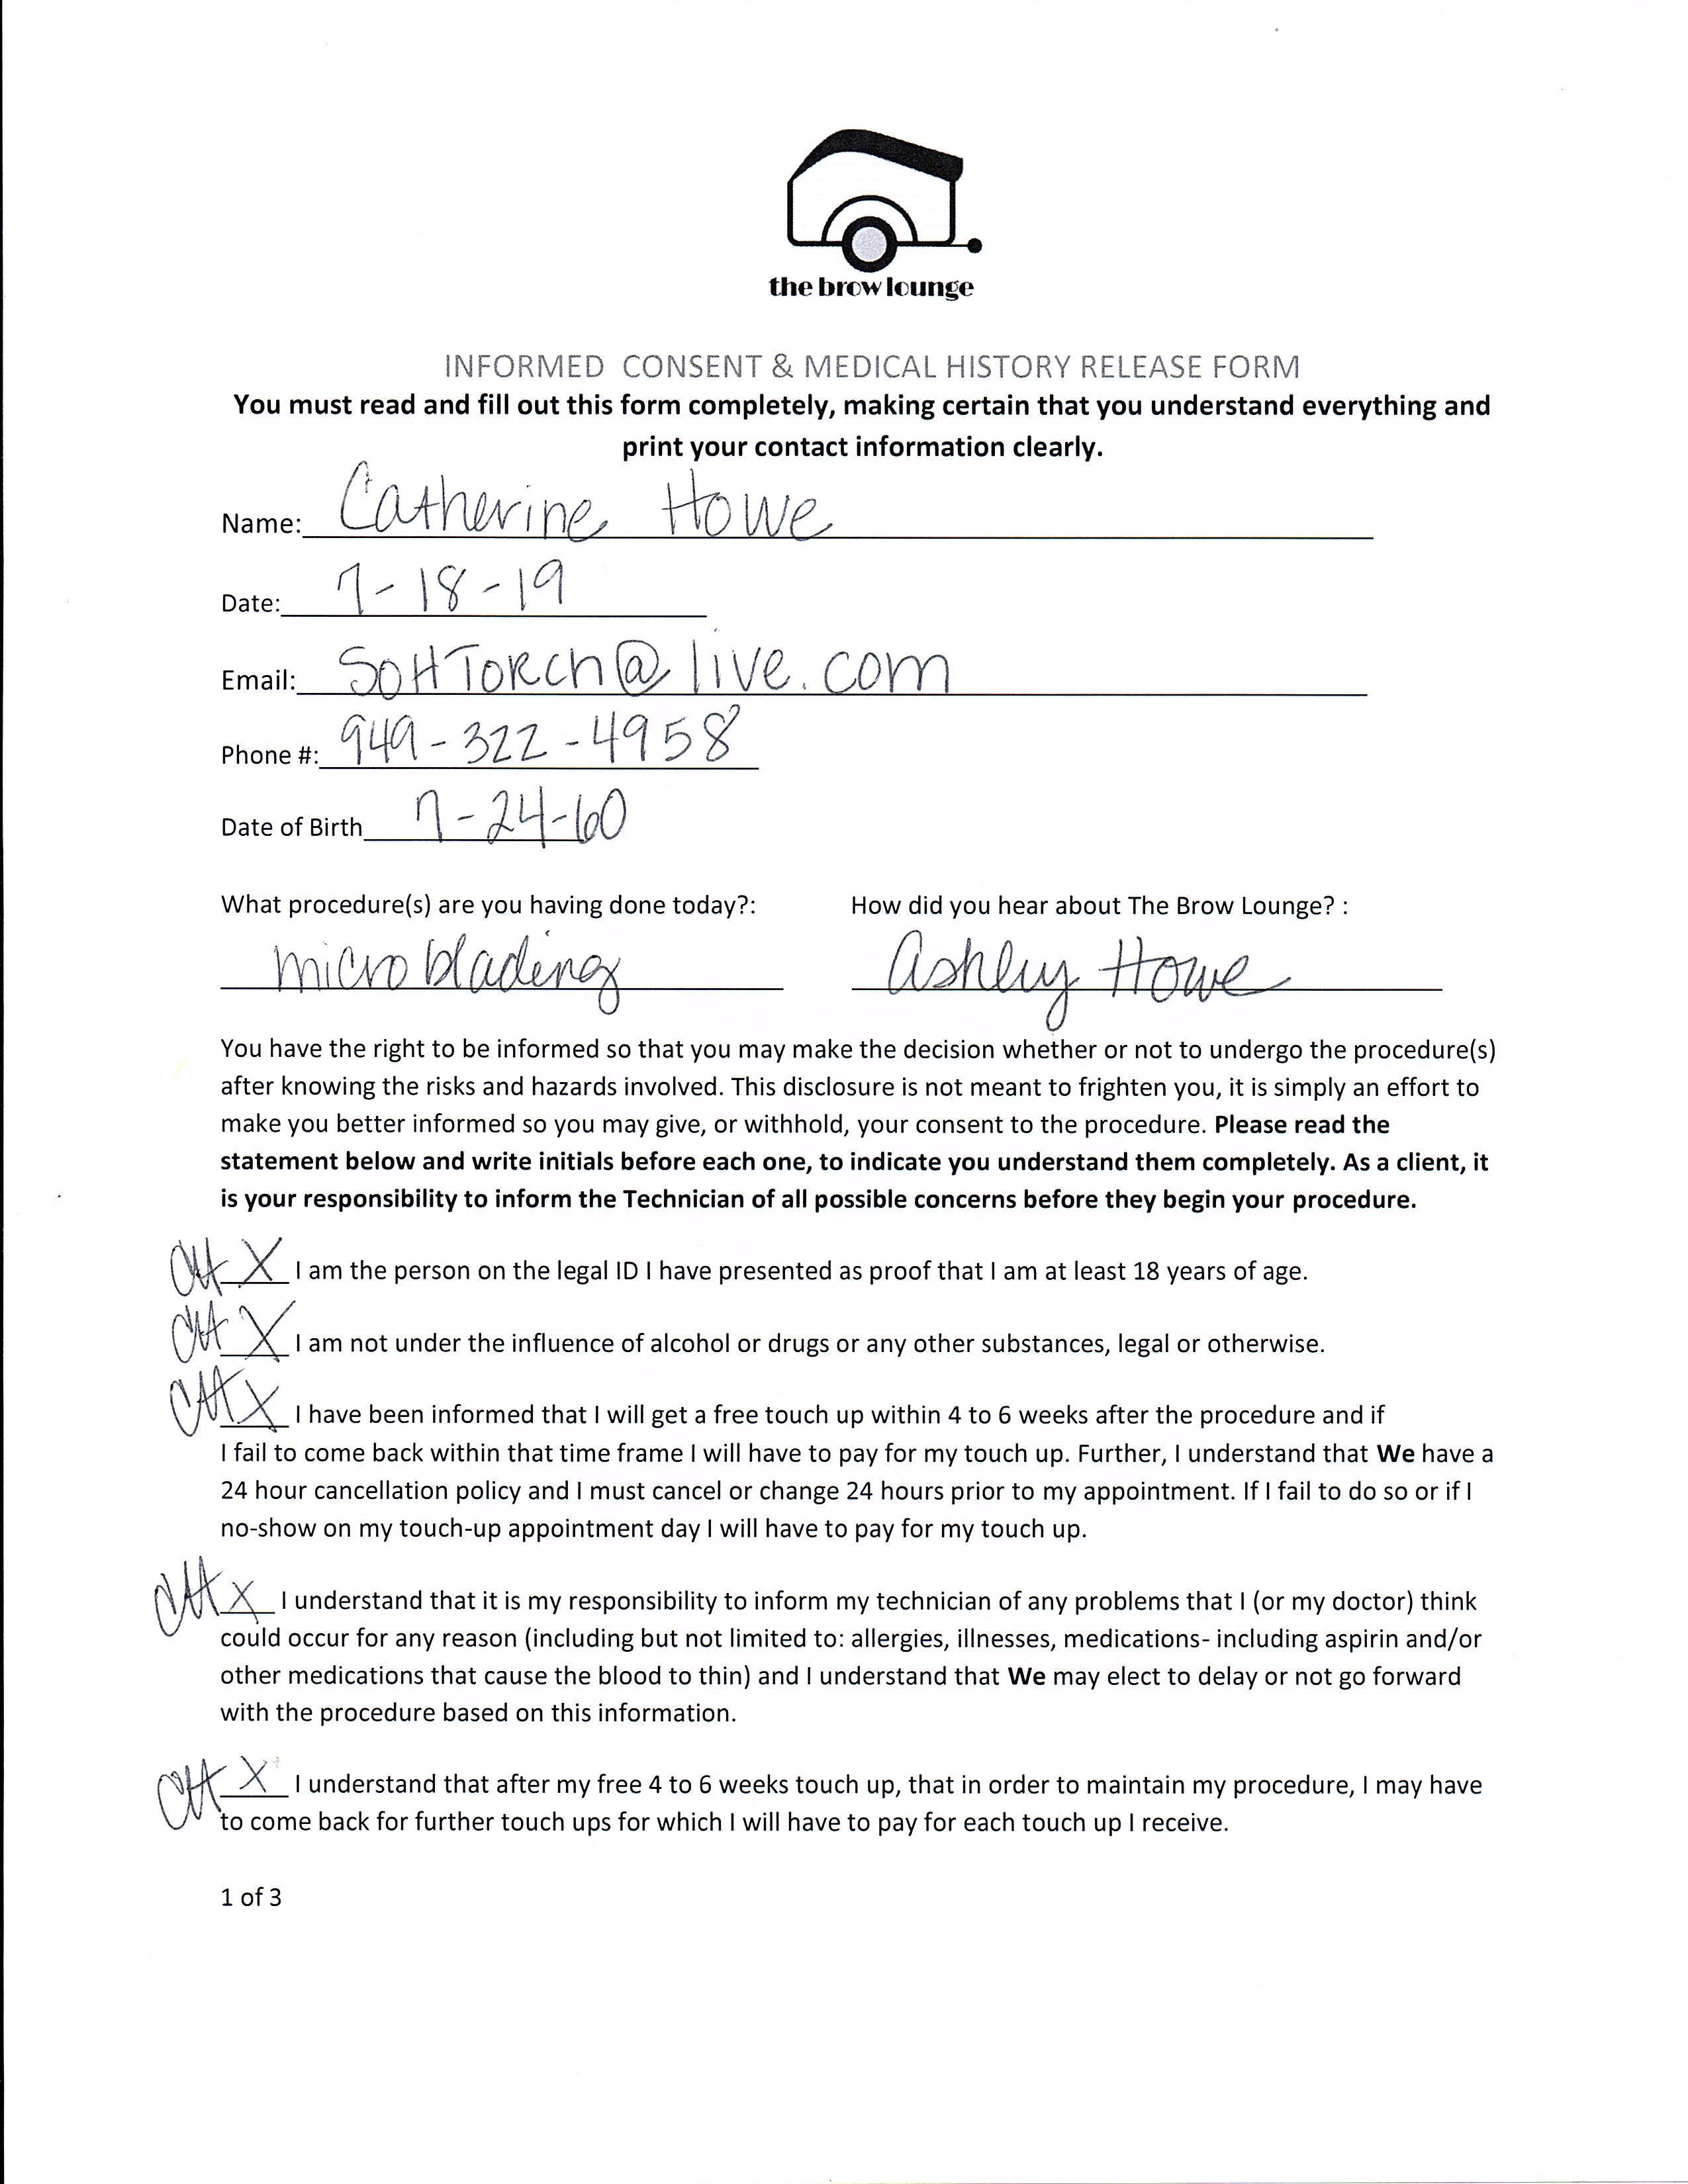 the brow lounge
INFORMED CONSENT & MEDICAL HISTORY RELEASE FORM
You must read and fill out this form completely, making certain that you understand everything and
print your contact information clearly.
Name: Catherine Howe
Date: 7-18-19
Email: SOHTORCH@live.com
Phone #: 949-322-4958
Date of Birth 7-24-60
What procedure(s) are you having done today?: How did you hear about The Brow Lounge? :
microblading Ashley Howe
You have the right to be informed so that you may make the decision whether or not to undergo the procedure(s)
after knowing the risks and hazards involved. This disclosure is not meant to frighten you, it is simply an effort to
make you better informed so you may give, or withhold, your consent to the procedure. Please read the
statement below and write initials before each one, to indicate you understand them completely. As a client, it
is your responsibility to inform the Technician of all possible concerns before they begin your procedure.
CH X I am the person on the legal ID I have presented as proof that I am at least 18 years of age.
CH X I am not under the influence of alcohol or drugs or any other substances, legal or otherwise.
CH X I have been informed that I will get a free touch up within 4 to 6 weeks after the procedure and if
I fail to come back within that time frame I will have to pay for my touch up. Further, I understand that We have a
24 hour cancellation policy and I must cancel or change 24 hours prior to my appointment. If I fail to do so or if I
no-show on my touch-up appointment day I will have to pay for my touch up.
CH X I understand that it is my responsibility to inform my technician of any problems that I (or my doctor) think
could occur for any reason (including but not limited to: allergies, illnesses, medications- including aspirin and/or
other medications that cause the blood to thin) and I understand that We may elect to delay or not go forward
with the procedure based on this information.
CH X I understand that after my free 4 to 6 weeks touch up, that in order to maintain my procedure, I may have
to come back for further touch ups for which I will have to pay for each touch up I receive.
1 of 3